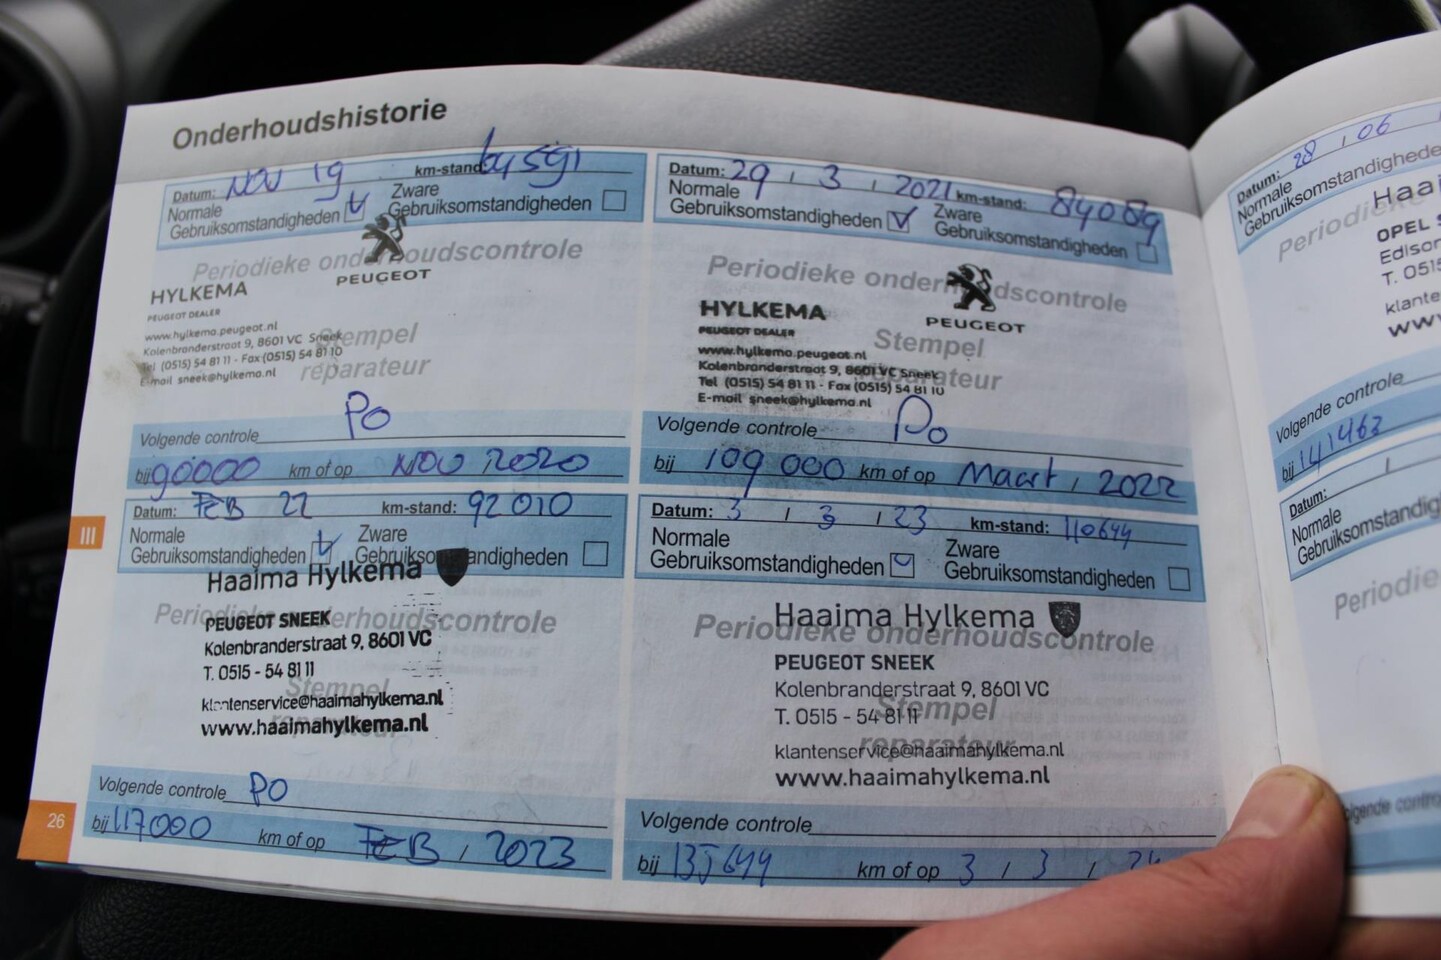 Onderhoudshistorie
Datum: NOV 19 km-stand: 64591
Normale Gebruiksomstandigheden
Zware Gebruiksomstandigheden
Periodieke onderhoudscontrole
PEUGEOT
HYLKEMA
PEUGEOT DEALER
www.hylkema.peugeot.nl
Kolenbranderstraat 9, 8601 VC Sneek
Tel (0515) 54 81 11 - Fax (0515) 54 81 10
E-mail sneek@hylkema.nl
Stempel
reparateur
Volgende controle PO
bij 90000 km of op NOV 2020
Datum: 29 / 3 / 2021 km-stand: 84089
Normale Gebruiksomstandigheden
Zware Gebruiksomstandigheden
Periodieke onderhoudscontrole
PEUGEOT
HYLKEMA
PEUGEOT DEALER
www.hylkema.peugeot.nl
Kolenbranderstraat 9, 8601 VC Sneek
Tel (0515) 54 81 11 - Fax (0515) 54 81 10
E-mail sneek@hylkema.nl
Stempel
reparateur
Volgende controle Po
bij 109 000 km of op Maart / 2022
III
Datum: FEB 22 km-stand: 92010
Normale Gebruiksomstandigheden
Zware Gebruiksomstandigheden
Haaima Hylkema
Periodieke onderhoudscontrole
PEUGEOT SNEEK
Kolenbranderstraat 9, 8601 VC
T. 0515 - 54 81 11
Stempel
klantenservice@haaimahylkema.nl
reparateur
www.haaimahylkema.nl
Volgende controle PO
bij 117000 km of op FEB / 2023
Datum: 3 / 3 / 23 km-stand: 110644
Normale Gebruiksomstandigheden
Zware Gebruiksomstandigheden
Haaima Hylkema
Periodieke onderhoudscontrole
PEUGEOT SNEEK
Kolenbranderstraat 9, 8601 VC
T. 0515 - 54 81 11
Stempel
reparateur
klantenservice@haaimahylkema.nl
www.haaimahylkema.nl
Volgende controle
bij 135644 km of op 3 / 3 / 24
26
Datum: 28 / 06 /
Normale
Gebruiksomstandighede
Periodie
Haai
OPEL S
Edison
T. 0515
klante
www
Volgende controle
bij 141463
Datum: /
Normale
Gebruiksomstandig
Periodie
olgende contro